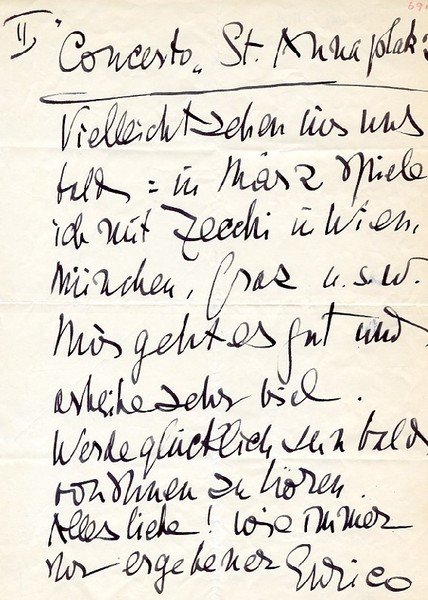 II, "Concerto" St. Annaplatz
Vielleicht sehen wir uns
bald = in März spiele
ich mit Zecchi in Wien,
München, Graz u.s.w.
Mir geht es gut und
arbeite sehr viel.
Werde glücklich sein bald
von Ihnen zu hören.
Alles liebe! wie immer
Ihr ergebener Enrico